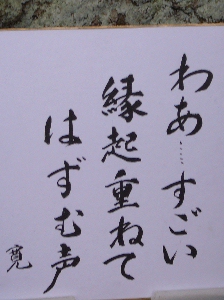 わあ……すごい
縁起重ねて
はずむ声
寛